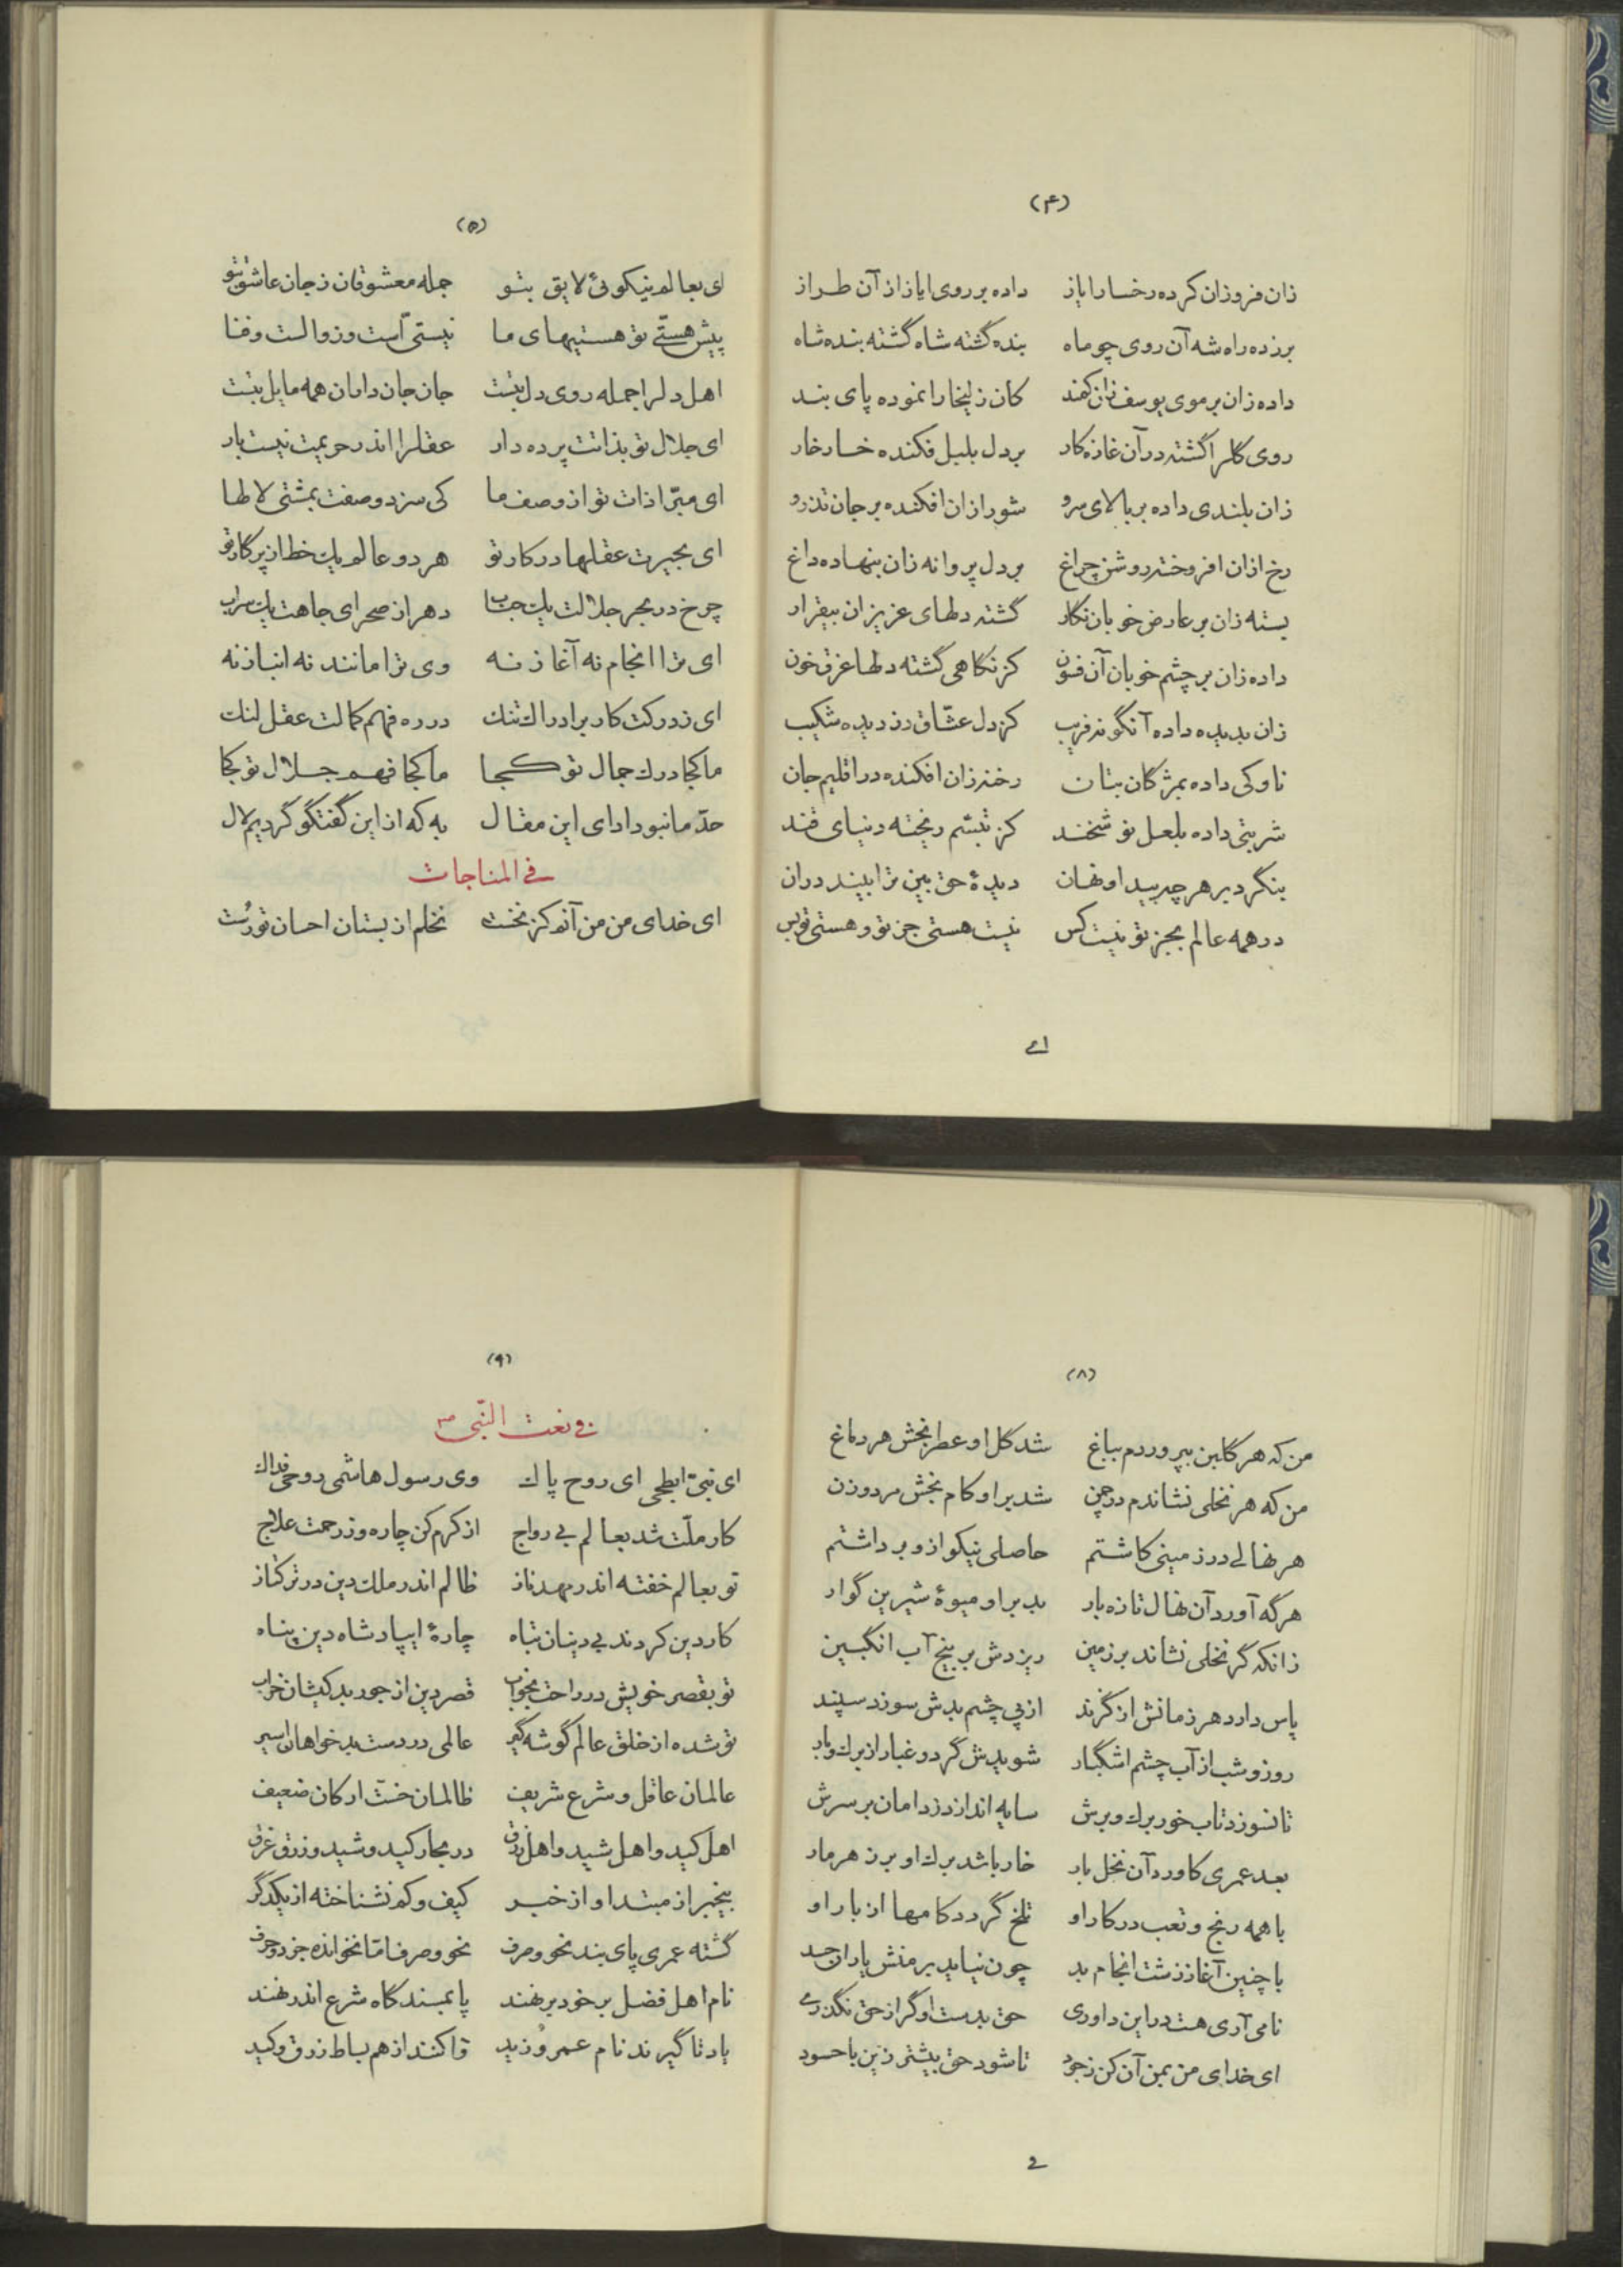 (۴)
زان فروزان کرده رخسار ایاز داده بر روی ایاز از آن طراز
بر زده راه شه آن روی چو ماه بنده گشته شاه گشته بنده شاه
داده زان بر موی یوسف زان کمند کان زلیخا را نموده پای بند
روی گل را گشته در آن غازه کار بر دل بلبل فکنده خار خار
زان بلندی داده بر بالای سرو شور ازان افکنده بر جان تذرو
رخ ازان افروخته روشن چراغ بر دل پروانه زان بنهاده داغ
بسته زان بر عارض خوبان نگار گشته دلهای عزیزان بیقرار
داده زان بر چشم خوبان آن فسون کز نگاهی گشته دلها غرق خون
زان بدیده داده آنگونه فریب کز دل عشّاق دزدیده شکیب
ناوکی داده بمژگان بتان رخنه زان افکنده در اقلیم جان
شربتی داده بلعل نوشخند کز تبسّم ریخته دنیای قند
بنگرد بر هر چه پیدا و نهان دیدهٔ حق بین ترا بیند دران
در همه عالم بجز تو نیست کس نیست هستی جز تو و هستی تو بس
ای
(۵)
ای بعالم نیکوئی لایق بتو جمله معشوقان ز جان عاشق بتو
پیش هستّی تو هستیهای ما نیستی است و زوالست و فنا
اهل دل را جمله روی دل بتست جان جان داران همه مایل بتست
ای جلال تو بذاتت پرده دار عقل را اندر حریمت نیست بار
ای مبّرا ذات تو از وصف ما کی سزد وصفت بمشتی لا طا
ای بحیرت عقلها در کار تو هر دو عالم یک خط از پرگار تو
چرخ در بحر جلالت یک حباب دهر از صحرای جاهت یک سراب
ای ترا انجام نه آغاز نه وی ترا مانند نه انباز نه
ای ز درکت کار بر ادراک تنگ در ره فهم کمالت عقل لنگ
ما کجا درک جمال تو کجا ما کجا فهم جلال تو کجا
حدّ ما نبود ادای این مقال به که از این گفتگو گردیم لال
فی المناجات
ای خدای من من آنم کز نخست نخلم از بستان احسان تو رست
(۸)
من که هر گلبن بپروردم بباغ شد گل او عطر بخش هر دماغ
من که هر نخلی نشاندم در چمن شد بر او کام بخش مرد و زن
هر نهالی در زمینی کاشتم حاصلی نیکو ازو برداشتم
هر گه آورد آن نهال تازه بار بد بر او میوهٔ شیرین گوار
زانکه گر نخلی نشاند بر زمین ریزدش بر بیخ آب انگبین
پاس دارد هر زمانش از گزند از پی چشم بدش سوزد سپند
روز و شب از آب چشم اشگبار شویدش گرد و غبار از برک و بار
تا نسوزد تاب خور برک و برش سایه اندازد ز دامان بر سرش
بعد عمری کاورد آن نخل بار خار باشد برک او بر زهر مار
با همه رنج و تعب در کار او تلخ گردد کامها از بار او
با چنین آغاز زشت انجام بد چون نیاید بر منش یاران حسد
نامی آری هست در این داوری حق بدست او گر از حق نگذری
ای خدای من بمن آن کن ز جود تا شود حق بیشتر زین با حسود
2
(۹)
فی نعت النّبی ص
ای نبیّ ابطحی ای روح پاک وی رسول هاشمی روحی فداک
کار ملّت شد بعالم بی رواج از کرم کن چاره وز رحمت علاج
تو بعالم خفته اندر مهد ناز ظالم اندر ملک دین در ترکتاز
کار دین کردند بی دینان تباه چارهٔ ای پادشاه دین پناه
تو بقصر خویش در راحت بخواب قصر دین از جور بد کیشان خراب
تو شده از خلق عالم گوشه گیر عالمی در دست بد خواهان اسیر
عالمان عاقل و شرع شریف ظالمان خست ارکان ضعیف
اهل کید و اهل شید و اهل زرق در بحار کید و شید و زرق غرق
بیخبر از مبتدا و از خبر کیف و کم نشناخته از یکدگر
گشته عمری پای بند نحو و صرف نحو و صرف امّا نخوانده جز دو حرف
نام اهل فضل بر خود بر نهند پا بمسند گاه شرع اندر نهند
یاد تا گیرند نام عمرو زید وا کنند از هم بساط زرق و کید